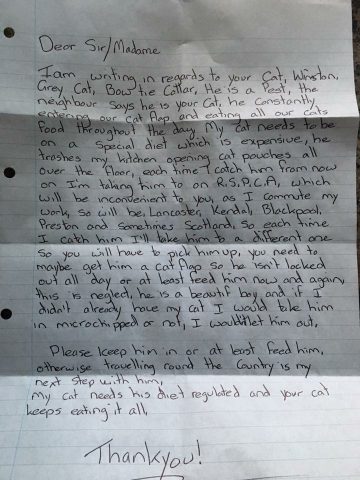 Dear Sir/Madame
I am writing in regards to your Cat, Winston,
Grey Cat, Bow tie Collar, He is a Pest, the
neighbour says he is your Cat, he constantly
entering our cat flap and eating all our cats
food throughout the day, My cat needs to be
on a special diet which is expensive, he
trashes my kitchen opening cat pouches all
over the floor, each time I catch him from now
on I'm taking him to an R.S.P.C.A, which
will be inconvenient to you, as I commute my
work, so will be, Lancaster, Kendal, Blackpool,
Preston and sometimes Scotland, So each time
I catch him I'll take him to a different one
so you will have to pick him up, you need to
maybe get him a cat flap so he isn't locked
out all day or at least feed him now and again,
this is neglect, he is a beautiful boy and if I
didn't already have my cat I would take him
in microchipped or not, I wouldn't let him out,
Please keep him in or at least feed him,
otherwise travelling round the Country is my
next step with him,
My cat needs his diet regulated and your cat
keeps eating it all,
Thankyou!